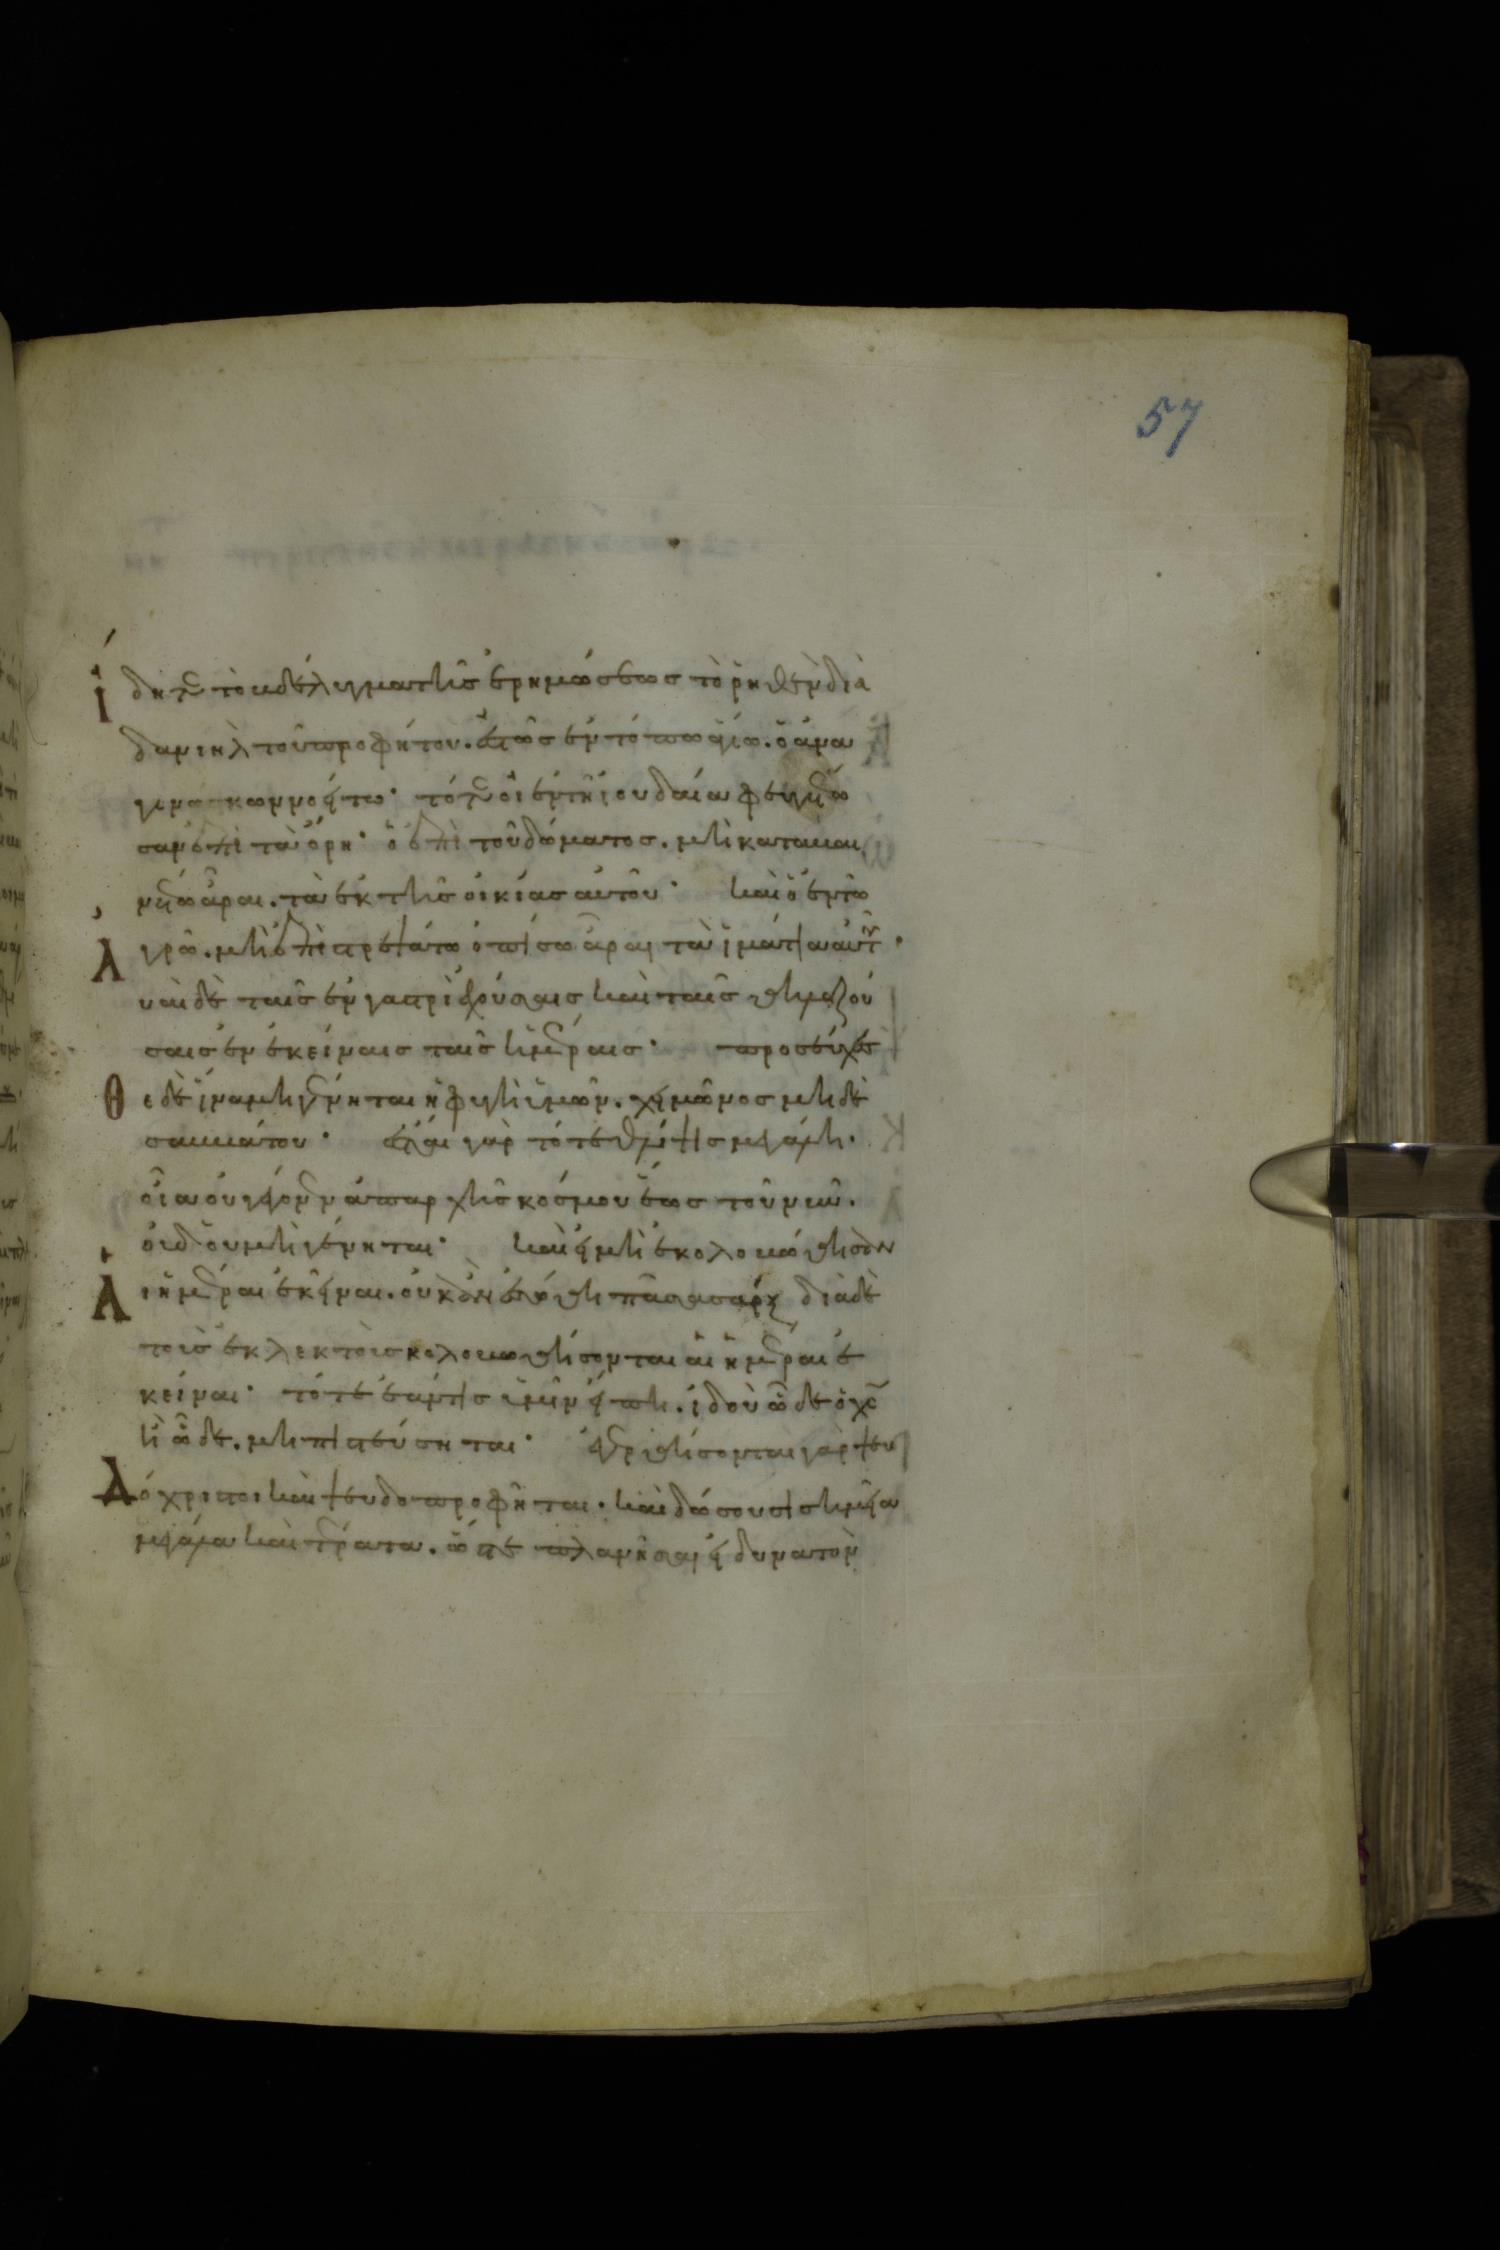 57
ἴδητε τὸ βδέλυγμα τῆς ἐρημώσεως τὸ ῥηθὲν διὰ
δανιὴλ τοῦ προφήτου. ἑστὼς ἐν τόπω ἁγίω. ὁ ἀνα
γινώσκων νοείτω· τότε οἱ ἐν τῆ ἰουδαία φευγέτω
σαν ἐπὶ τὰ ὄρη· ὁ ἐπὶ τοῦ δώματος. μὴ καταβαι
νέτω ἆραι. τὰ ἐκ τῆς οἰκίας αὐτοῦ· καὶ ὁ ἐν τῶ
ἀγρῶ. μὴ ἐπιστρεψάτω ὀπίσω ἆραι τὰ ἱμάτια αὐτοῦ·
οὐαὶ δὲ ταῖς ἐν γαστρὶ ἐχούσαις καὶ ταῖς θηλαζού
σαις ἐν ἐκείναις ταῖς ἡμέραις· προσεύχεσ
Θε δὲ ἵνα μὴ γένηται ἡ φυγὴ ὑμῶν. χειμῶνος μηδὲ
σαββάτου· ἔσται γὰρ τότε θλίψις μεγάλη.
οἵα οὐ γέγονεν ἀπαρχῆς κόσμου ἕως τοῦ νῦν.
οὐδ οὐ μὴ γένηται· καὶ εἰ μὴ ἐκολοβώθησαν
Αἱ ἡμέραι ἐκεῖναι. οὐκ ἂν ἐσώθη πᾶσα σάρξ διὰ δὲ
τοὺς ἐκλεκτοὺς κολοβωθήσονται αἱ ἡμέραι ἐ
κεῖναι· τότε ἐάν τις ὑμῖν εἴπη. ἰδοὺ ὧδε ὁ χς
ἢ ὧδε. μὴ πιστεύσηται· ἐγερθήσονται γὰρ ψευ
Δόχριστοι καὶ ψευδοπροφῆται. καὶ δώσουσι σημεῖα
μεγάλα καὶ τέρατα. ὥστε πλανῆσαι εἰ δυνατὸν